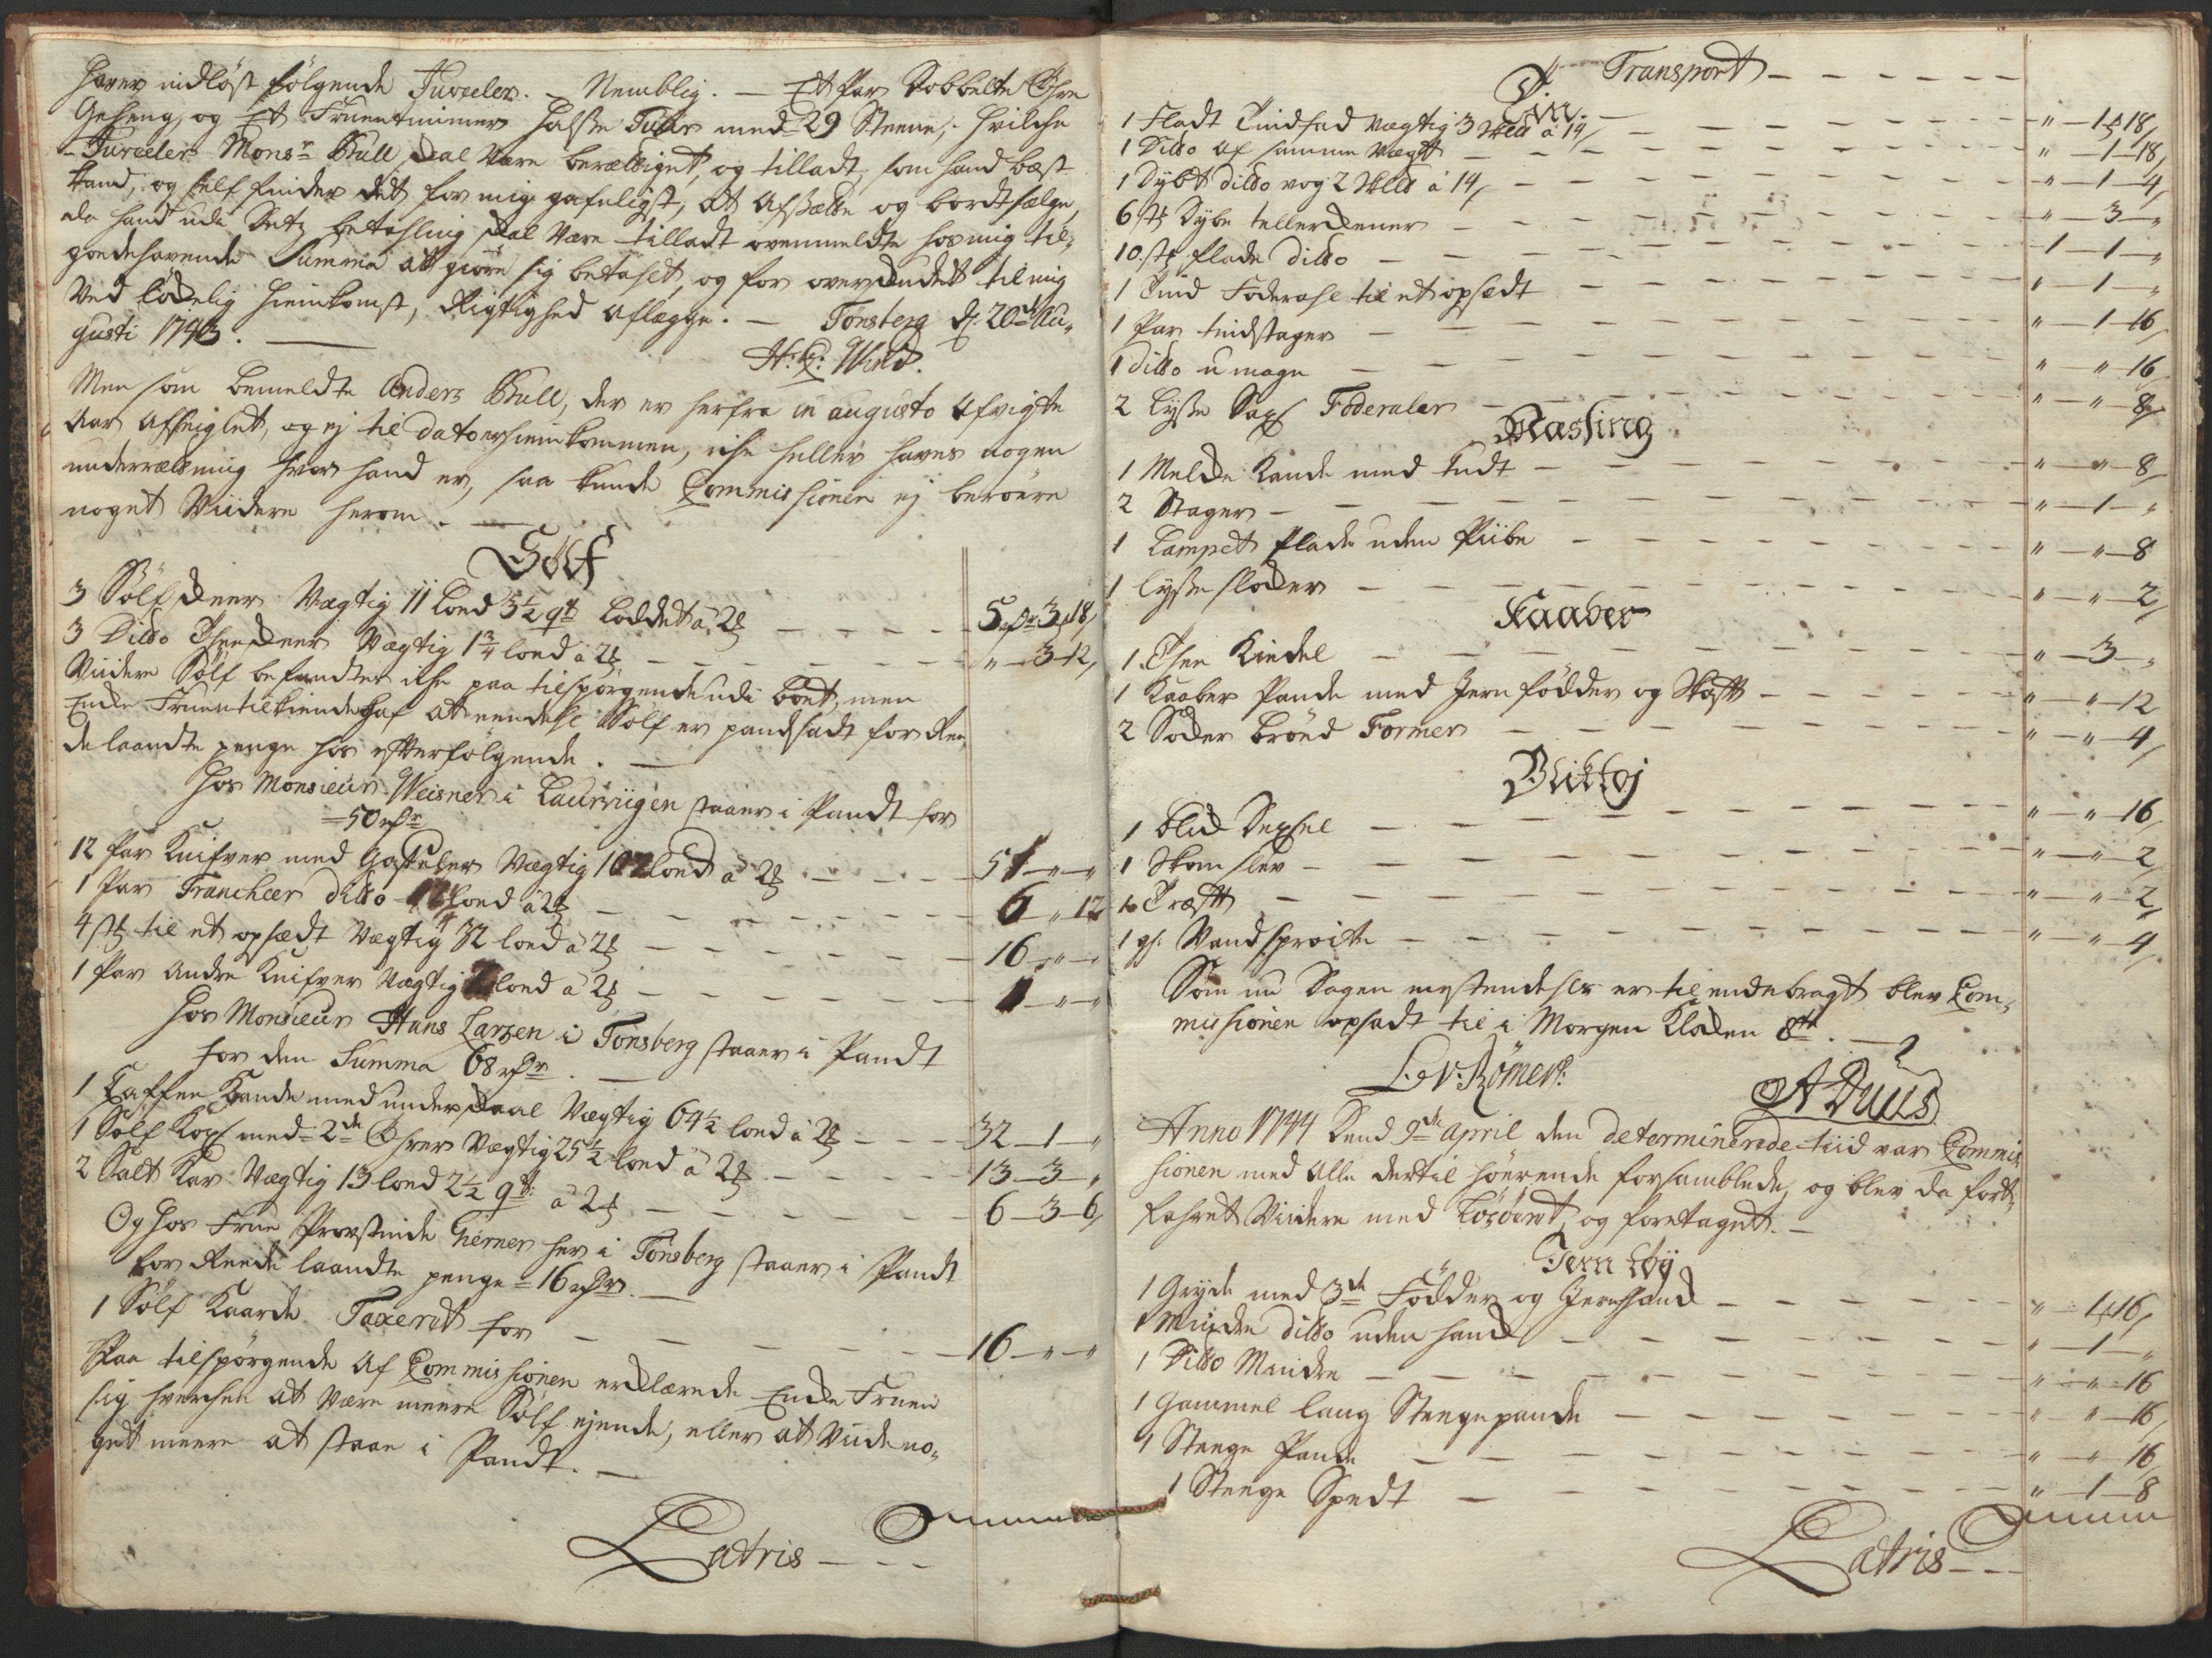 haver indløst følgende Juveeler. – Nemblig. – Et Par Dobbelte Øhre
Geheng, og Et Fruentimmer Halse med 29 Steene, hvilche
Juveeler Monsr Bull skal være berættiget, og tilladt, som hand bæst
kand, og self finder det for mig gafnligst, at afsætte og bortsælge,
da hand udi betahling skal være tilladt ovenmeldte hos mig til„
godehavende Summa at giøre sig betalt, og for overskudet til mig
Ved lökkelig hiemkomst, Rigtighed aflægge. – Tønsberg d. 20de Au„
gusti 1743. –
H: Wind.
Men som bemeldte Anders Bull, der er herfra in augusto afvigte
Aar afseiglet, og ej til dato er hiemkommen, iche heller haves nogen
underrætning hvor hand er, saa kunde Commissionen ej berøre
noget Viidere herom. –
Sølf
3 Sølf Skeer Vægtig 11 Loed 3½ qt Loddet à 2 – 5 rdr 3 18
3 Ditto Theskeer Vægtig 1¾ loed à 2 – „ – 3 – 12
Viidere Sølf befandtes iche paa tilspørgende udi boet, men
Encke Fruen tilkiendegaf at eendehl Sølf er pandsadt for Ree„
de laante penge hos efterfølgende. –
Hos Monsieur Weisner i Laurviigen staaer i Pandt for
= 50 rdr
12 Par Knifver med Gafler Vægtig 102 loed à 2 – 51 – „ – „
1 Par Trancheer ditto loed à 2 – 6 „ 12
4 st til et opsædt Vægtig 32 loed à 2 – 16 – „ – „
1 Par andre Knifver Vægtig loed à 2 – 1 – „ – „
Hos Monsieur Hans Larsen i Tønsberg staaer i Pandt
for den Summa 68 rdr. –
1 Caffee Kande med underskaal Vægtig 64½ loed à 2 – 32 – 1 – „
1 Sølf Kop med 2de Øhrer Vægtig 25½ loed à 2 – 13 – 3 – „
2 Salt Kar Vægtig 13 loed 2½ qt: à 2 – 6 – 3 – 6
Og hos Frue Provstinde her i Tønsberg staaer i Pandt
for Reede laante penge = 16 rdr. –
1 Sølf Kaarde Taxeret for – 16 – „ – „
Paa tilspørgende af Commissionen erklærede Encke Fruen
sig hverchen at være meere Sølf ejende, eller at vide no„
get meere at staae i Pandt. –
Latris – – – Summa
Transport – – – – – –
Tin
1 Fladt Tindfad vægtig 3 à 14 – „ – 1 18
1 Ditto af samme Vægt – „ – 1 – 18
1 Dybt ditto vog 2 à 14 – „ – 1 – 4
6 st Dybe tellerckener – „ – 3 – „
10 st flade ditto – 1 – 1 – „
1 Tind Foderahl til et opsedt – „ – 1 – „
1 Par tindstager – „ – 1 – 16
1 ditto u mage – „ – „ – 16
2 Lyse Sax Foderaler – „ – „ – 8
Messing
1 Melcke Kande med tudt – „ – „ – 8
2 Stager – „ – 1 – „
1 Lampet flade uden Piibe – „ – „ – 8
1 lyse slocker – „ – „ – 2
Kaaber
1 Thee Kiedel – „ – 3 – „
1 Kaaber Pande med Jern fødder og Skaft – „ – „ – 12
2 Socker brøed Former – „ – „ – 4
Bliktøj
1 Blick – „ – „ – 16
1 Skom slev – „ – „ – 2
1 Træcht – „ – „ – 2
1 gl: Vand sproite – „ – „ – 4
Som nu Dagen mestendehls er til ende bragt blev Com„
missionen opsadt til i Morgen Klocken 8te. –
L: v: Römer:
A Duus
Anno 1744 dend 9de April den determinerede tiid var Commis
sionen med alle dertil hørende forsamblede, og blev da fort„
fahret Viidere med Løsøret, og foretaget. –
Jern tøy
1 Gryde med 3de Fødder og Jernhand – „ – 1 16
1 Mindre ditto uden hand – „ – 1 – „
1 Ditto Mindre – „ – „ – 16
1 Gammel lang Stegepande – „ – „ – 16
1 Steege Pande – „ – „ – 16
1 Steege Spedt – „ – 1 – 8
Latris – – – Summa